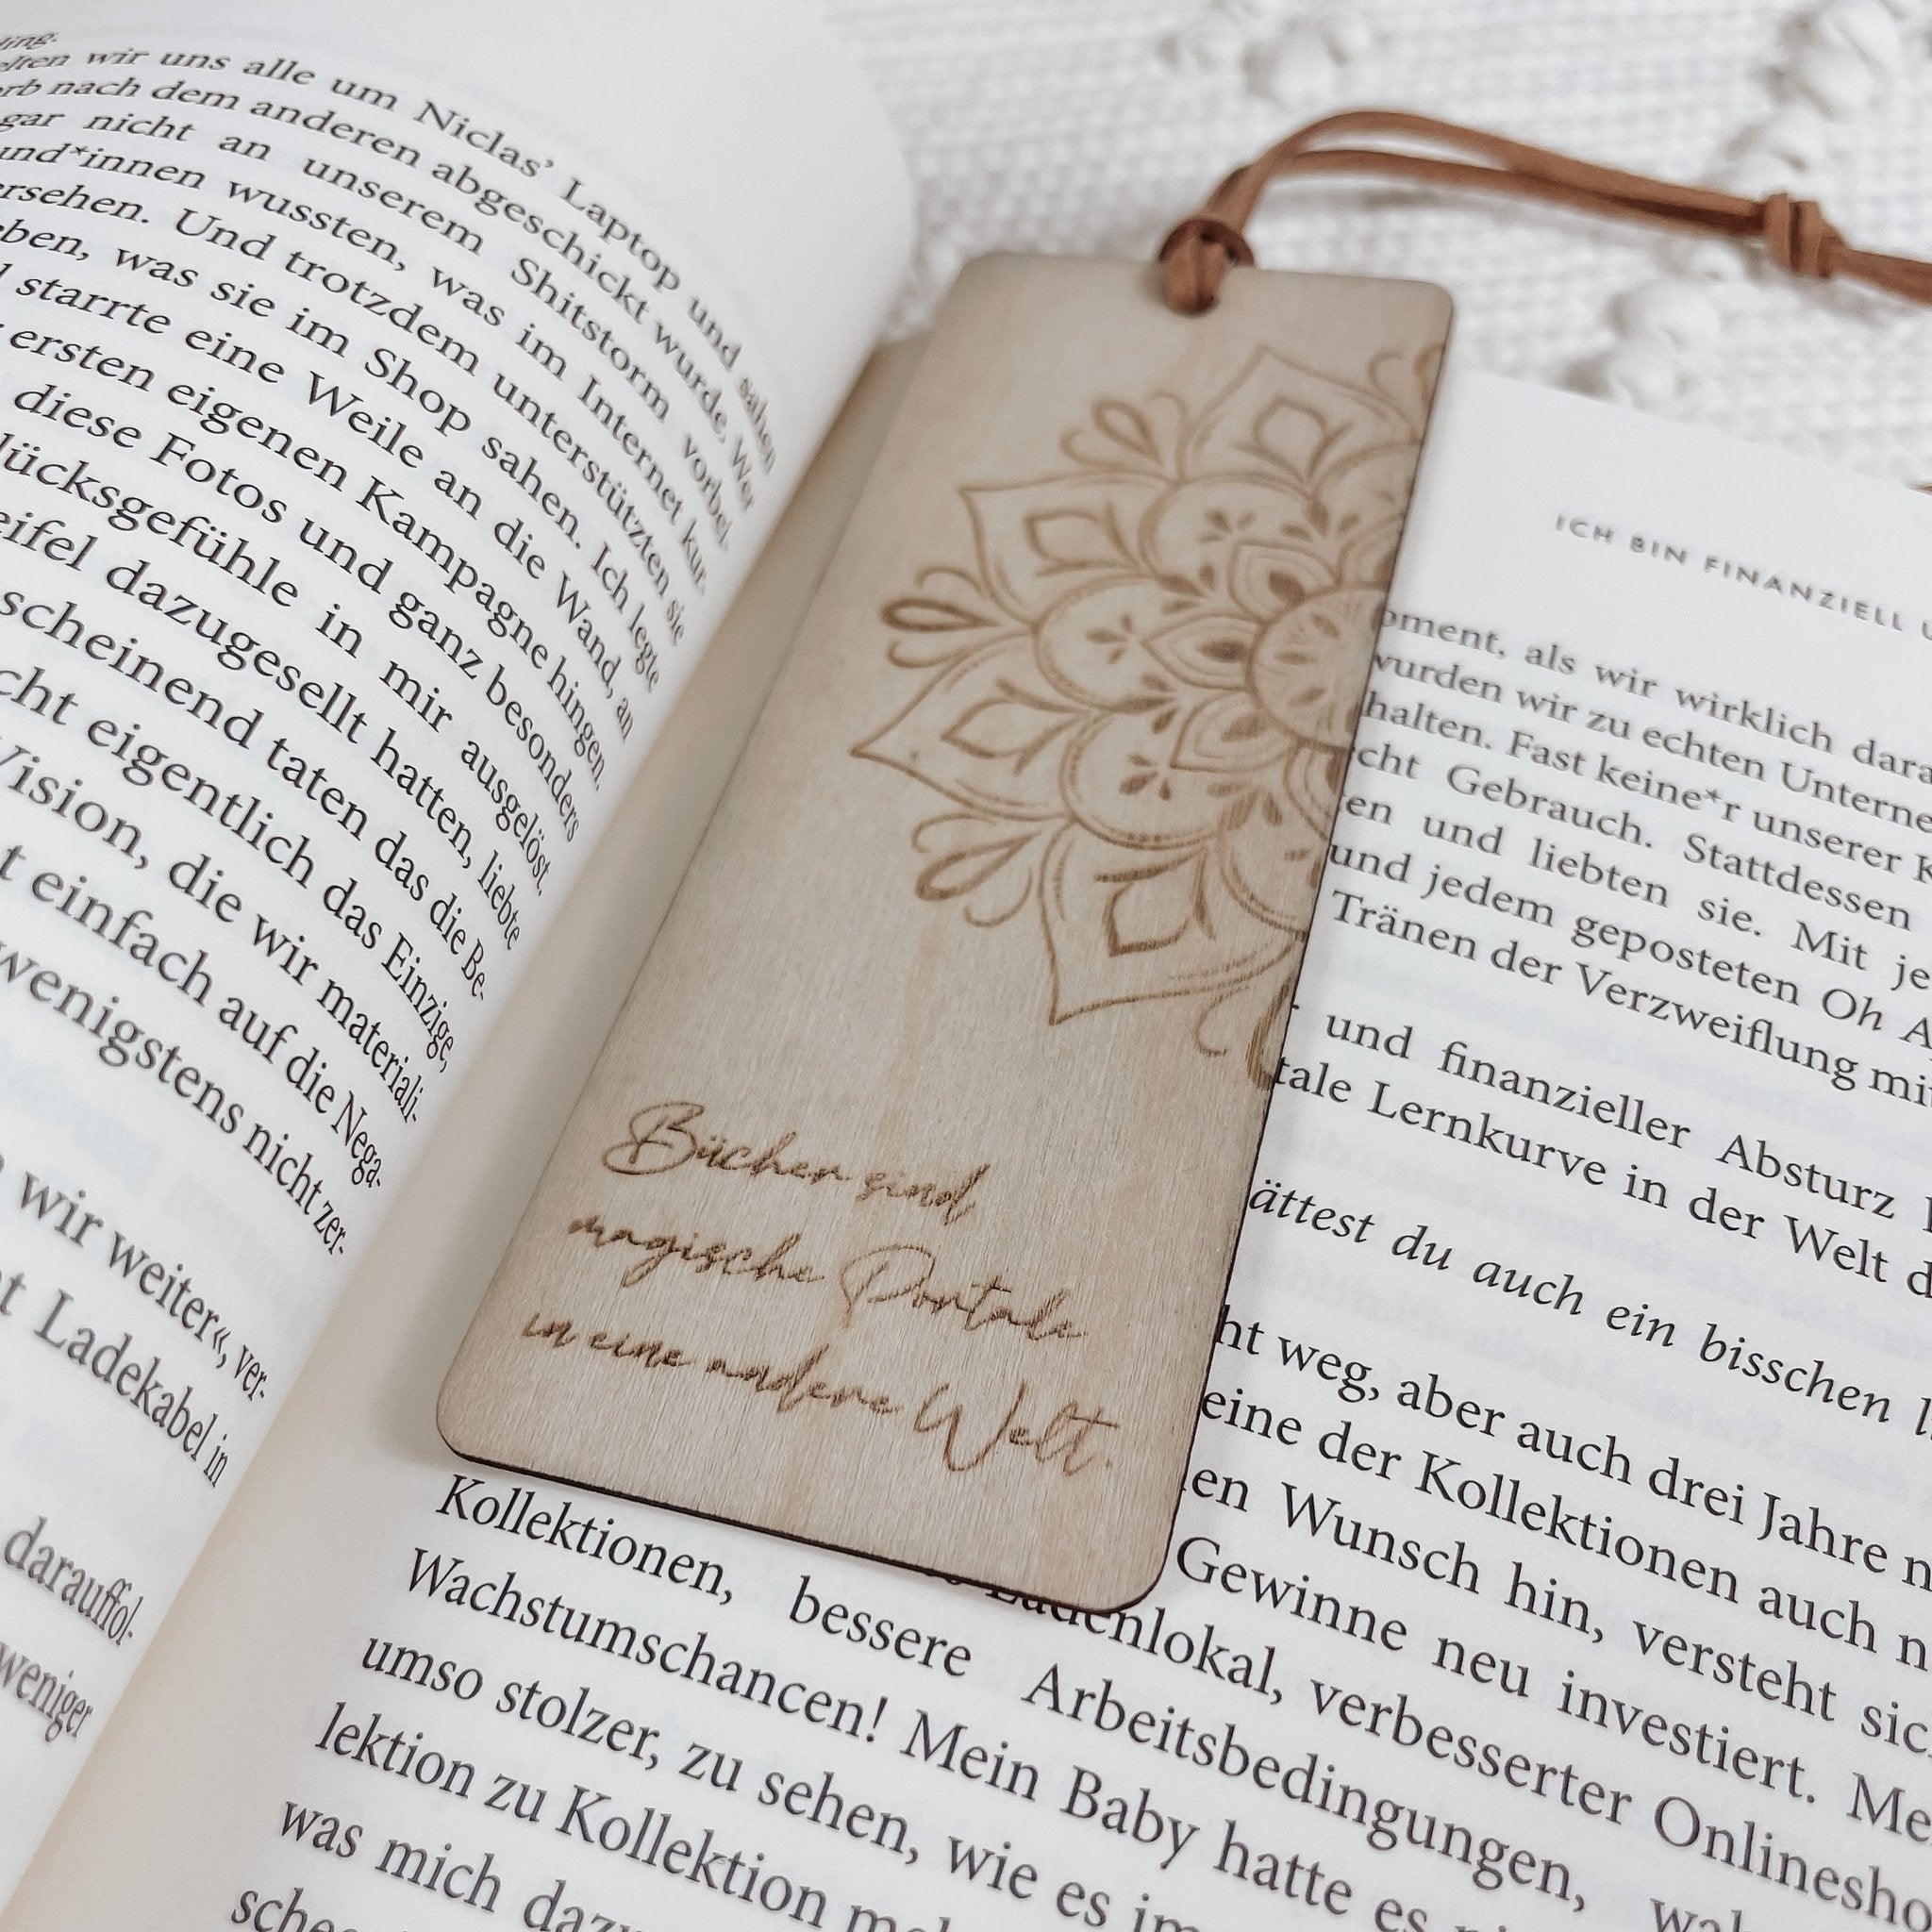 wir uns alle um Niclas’ Laptop und sahen
nach dem anderen abgeschickt wurde. Wer
gar nicht an unserem Shitstorm vorbei.
und*innen wussten, was im Internet kur-
ersehen. Und trotzdem unterstützten sie
was sie im Shop sahen. Ich legte
starrte eine Weile an die Wand, an
ersten eigenen Kampagne hingen.
diese Fotos und ganz besonders
lücksgefühle in mir ausgelöst,
eifel dazugesellt hatten, liebte
scheinend taten das die Be-
cht eigentlich das Einzige,
Vision, die wir materiali-
t einfach auf die Nega-
wenigstens nicht zer-
wir weiter«, ver-
Ladekabel in
darauffol-
weniger
Bücher sind
magische Portale
in eine andere Welt.
ICH BIN FINANZIELL
oment, als wir wirklich dara
wurden wir zu echten Unterne
halten. Fast keine*r unserer K
cht Gebrauch. Stattdessen
en und liebten sie. Mit je
und jedem geposteten Oh
Tränen der Verzweiflung mit
und finanzieller Absturz
tale Lernkurve in der Welt d
ättest du auch ein bisschen
ht weg, aber auch drei Jahre n
eine der Kollektionen auch n
en Wunsch hin, versteht sic
Gewinne neu investiert. Me
Ladenlokal, verbesserter Onlinesho
Kollektionen, bessere Arbeitsbedingungen,
Wachstumschancen! Mein Baby hatte es
umso stolzer, zu sehen, wie es im
lektion zu Kollektion
was mich